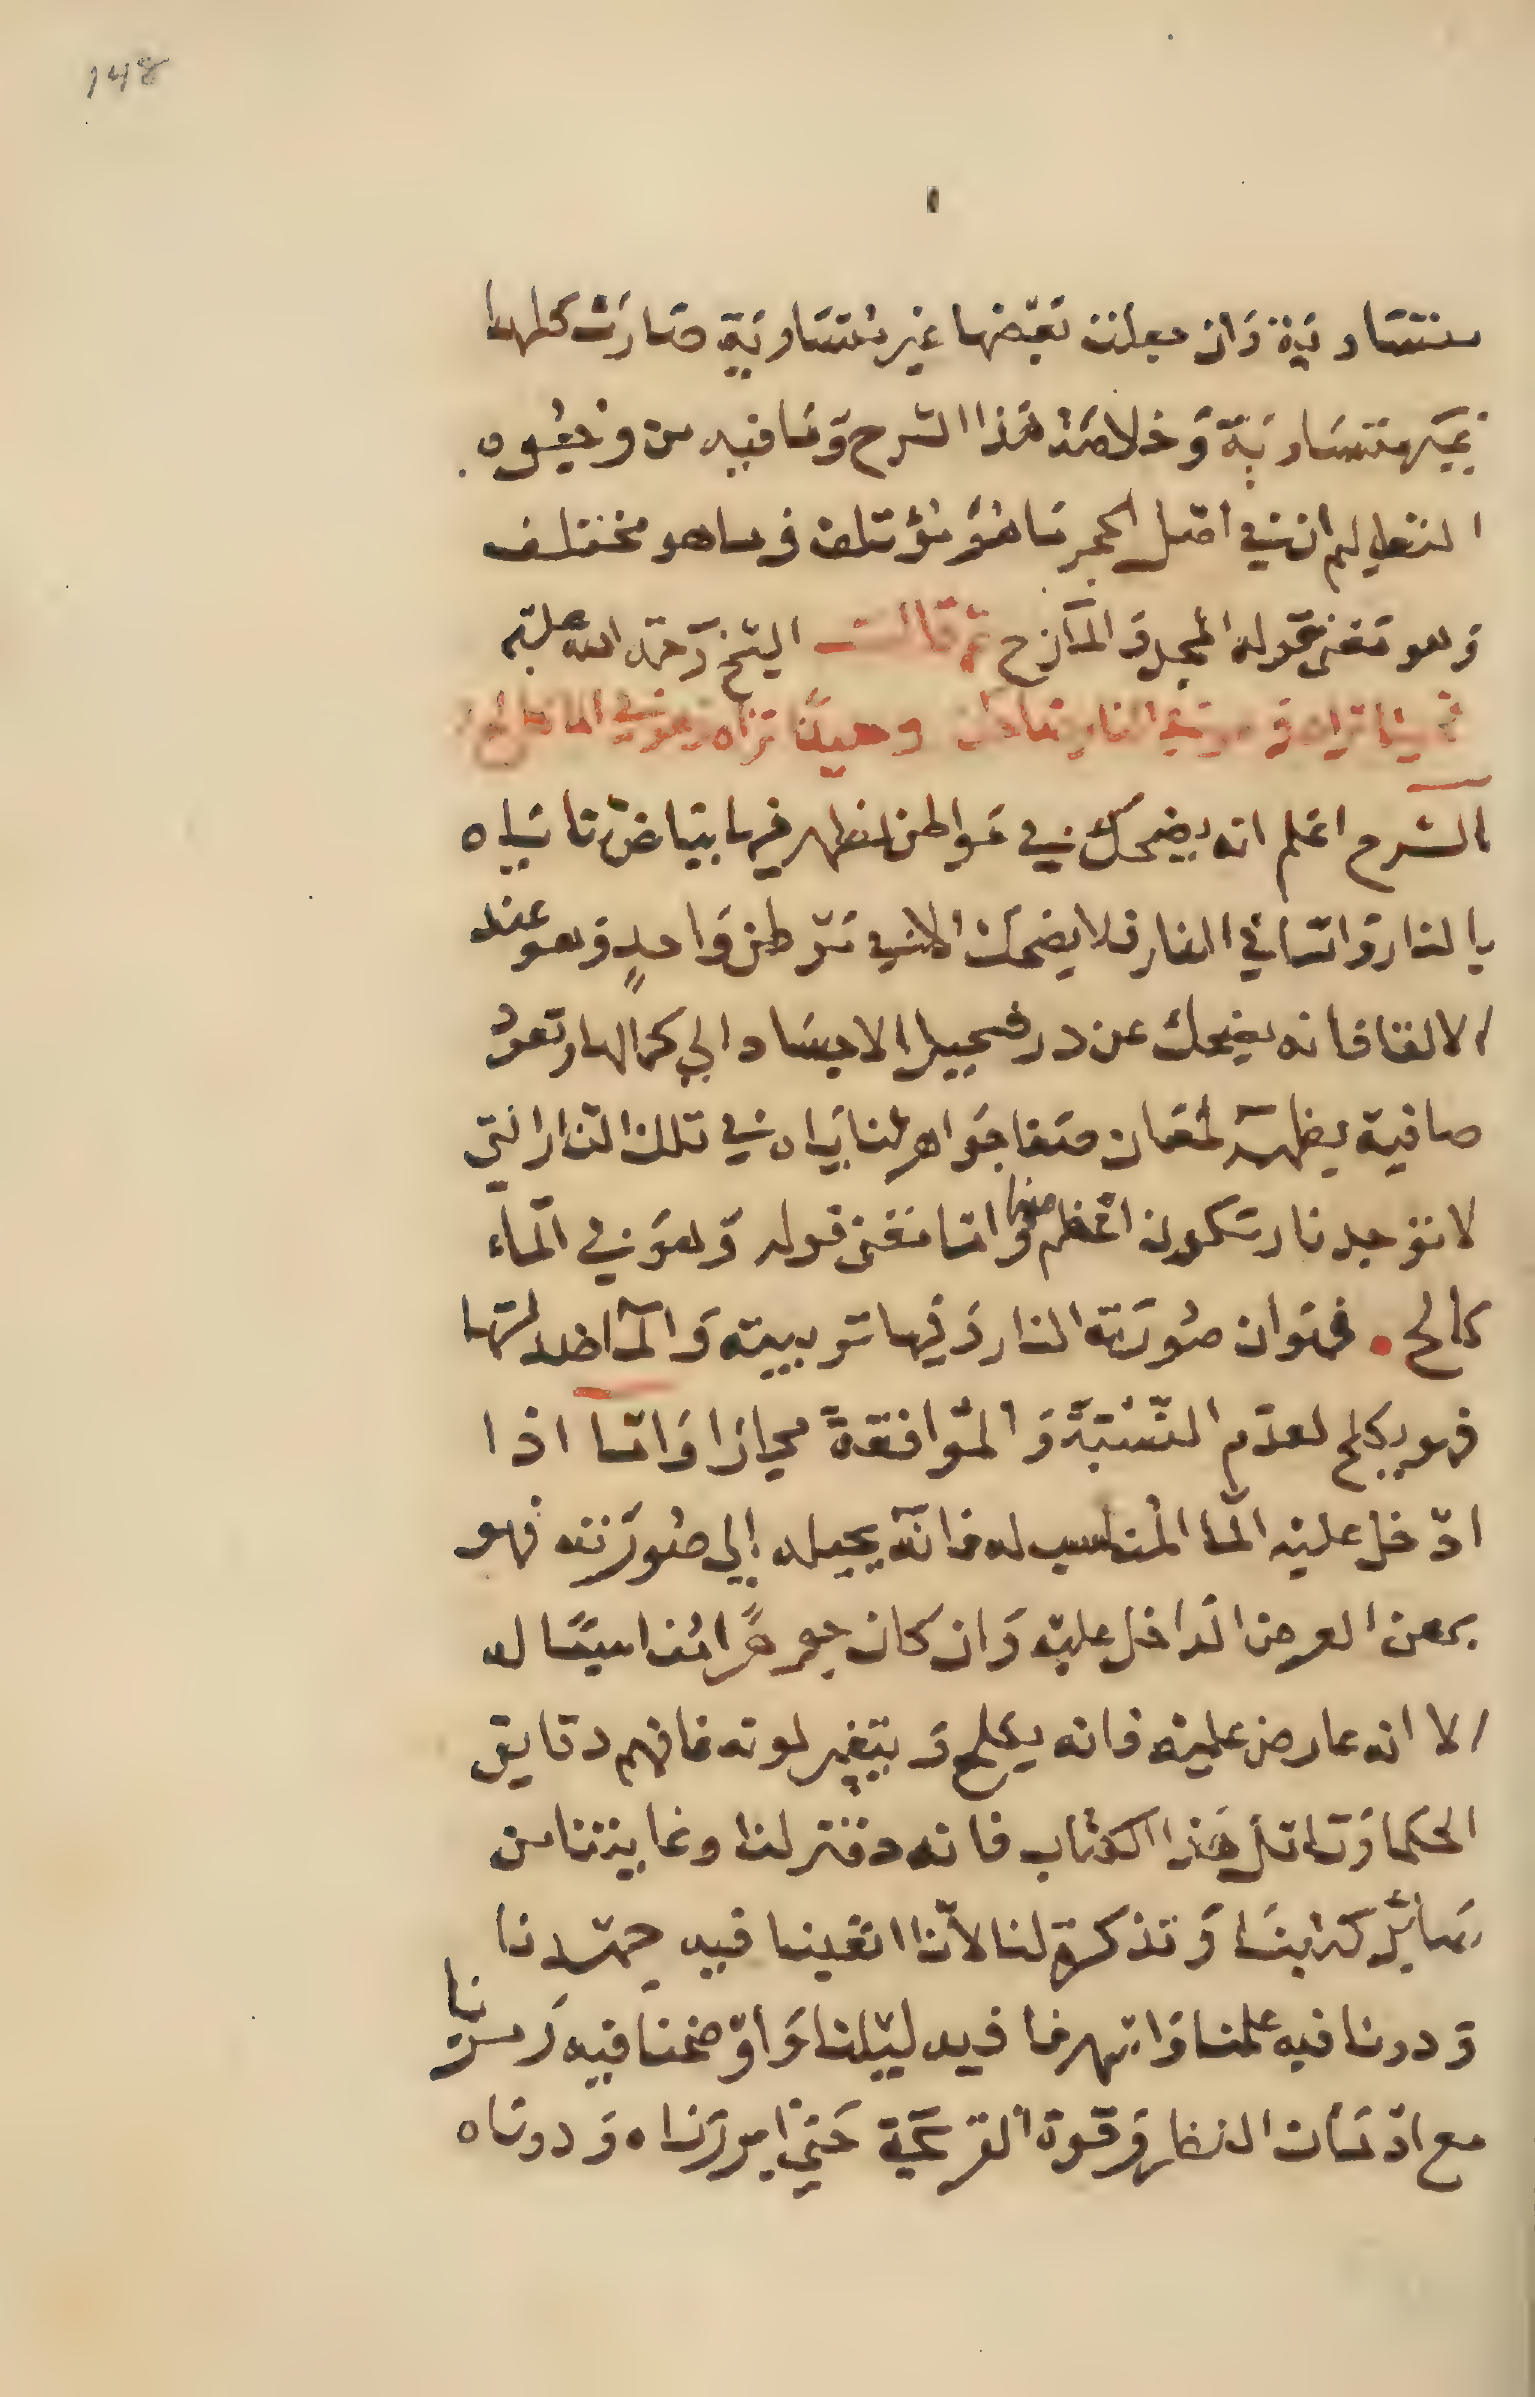 148
متساوية وان جعلت بعضها غير متساوية صارت كلها
غير متساوية وخلاصة هذا الشرح وما فيه من وجوه
التعليم ان في اصل الحجر ما هو مؤتلف وما هو مختلف
وهو معنى قوله المجد والمازح ثم قال الشيخ رحمة الله عليه
فحينا تراه وهو في النار ضاحك وحينا تراه وهو في الماء كالح
الشرح اعلم انه يضحك في مواطن يظهر فيها بياض ثناياه
بالنار واما في النار فلا يضحك الا في موطن واحد وهو عند
الالقا فانه يضحك عن در فيحيل الاجساد الي كمالها وتعود
صافية يظهر لمعان صفا جواهر ثناياه في تلك النار التي
لا توجد نار تكون اعظم منها واما معنى قوله وهو في الماء
كالح فهو ان صورته النار وفيها تربيته والماء ضد لها
فهو يكلح لعدم النسبة والموافقة مجازا واما اذا
ادخل عليه الما المناسب له فانه يحيله إلى صورته فهو
بمعنى العرض الداخل عليه وان كان جوهرا مناسبا له
الا انه عارض عليه فانه يكلح ويتغير لونه فافهم دقايق
الحكما وتامل هذا الكتاب فانه دفتر لنا وغايتنا من
سائر كتبنا وتذكرة لنا لأننا اتعبنا فيه جسدنا
ودونا فيه علمنا واسهرنا فيه ليلنا واوضحنا فيه رمزنا
مع ادمان النظر وقوة القريحة حتى ابرزناه ودوناه